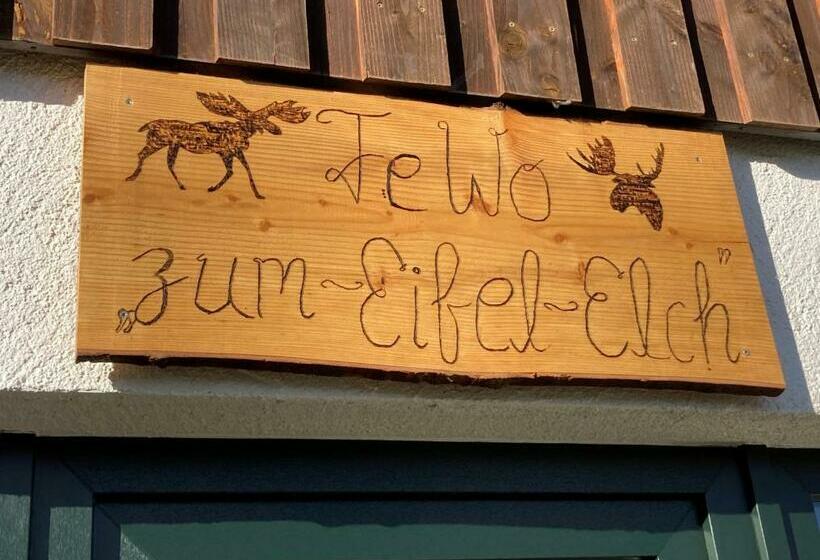 FeWo
„zum~Eifel~Elch"